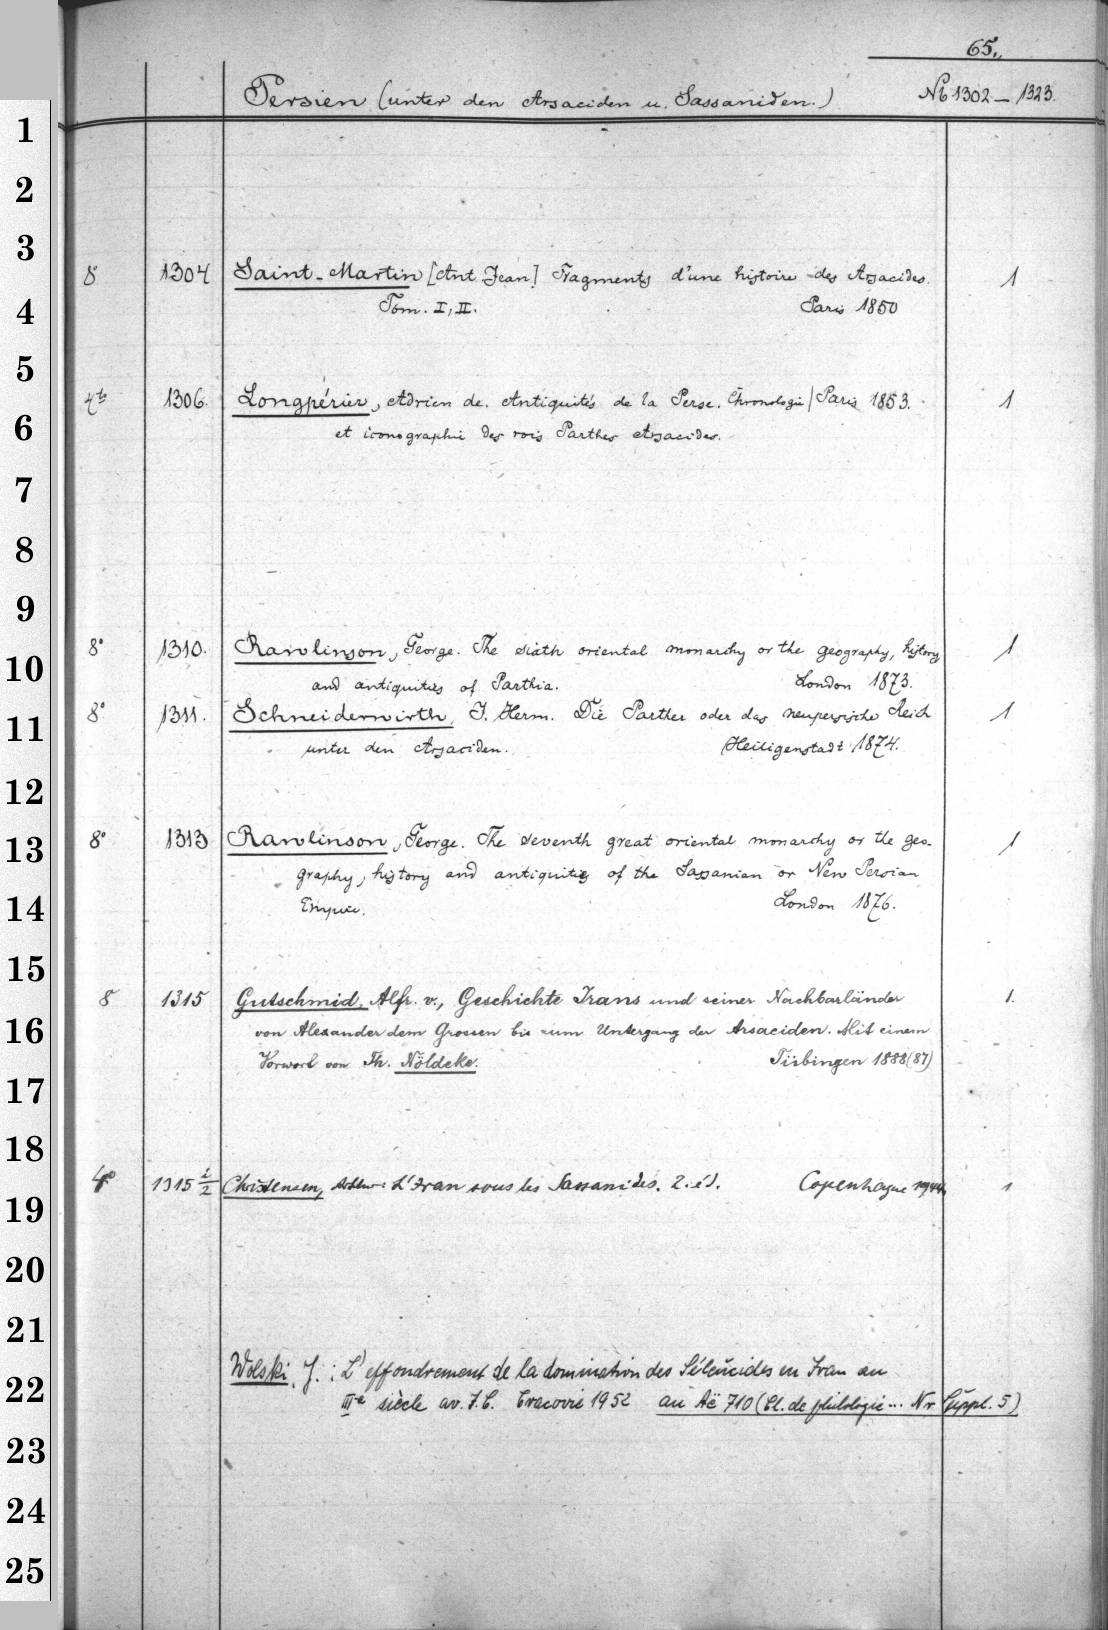 65.
Persien (unter den Arsaciden u. Sassaniden.) No 1302 – 1323.
1
2
3
8° 1304 Saint-Martin [Ant. Jean] Fragments d'une histoire des Arsacides. 1
4
Tom. I, II. Paris 1850
5
4to 1306. Longpérier, Adrien de. Antiquités de la Perse. Chronologie | Paris 1853. 1
6
et iconographie des rois Parthes Arsacides.
7
8
9
8° 1310. Rawlinson, George. The sixth oriental monarchy or the geography, history 1
10
and antiquities of Parthia. London 1873.
8° 1311. Schneiderwirth, J. Herm. Die Parther oder das neupersische Reich 1
11
unter den Arsaciden. Heiligenstadt 1874.
12
8° 1313 Rawlinson, George. The seventh great oriental monarchy or the geo- 1
13
graphy, history and antiquities of the Sassanian or New Persian
14
Empire. London 1876.
15
8 1315 Gutschmid, Alfr. v., Geschichte Irans und seiner Nachbarländer 1.
16
von Alexander dem Grossen bis zum Untergang der Arsaciden. Mit einem
Vorwort von Th. Nöldeke. Tübingen 1888(87)
17
18
4° 1315 1/2 Christensen, Arthur: L'Iran sous les Sassanides. 2. éd. Copenhague 1944. 1
19
20
21
Wolski, J.: L'effondrement de la domination des Séleucides en Iran au
22
IIIe siècle av. J. C. Cracovie 1952 au Aë 710 (Cl. de philologie... Nr Suppl. 5)
23
24
25